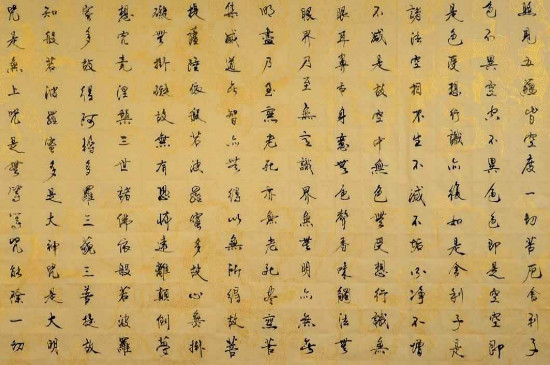 照見五蘊皆空度一切苦厄舍利子
色不異空空不異色色即是空空即
是色受想行識亦復如是舍利子是
諸法空相不生不滅不垢不淨不增
不減是故空中無色無受想行識無
眼耳鼻舌身意無色聲香味觸法無
眼界乃至無意識界無無明亦無無
明盡乃至無老死亦無老死盡無苦
集滅道無智亦無得以無所得故菩
提薩埵依般若波羅蜜多故心無掛
礙無掛礙故無有恐怖遠離顛倒夢
想究竟涅槃三世諸佛依般若波羅
蜜多故得阿耨多羅三藐三菩提故
知般若波羅蜜多是大神咒是大明
咒是無上咒是無等等咒能除一切